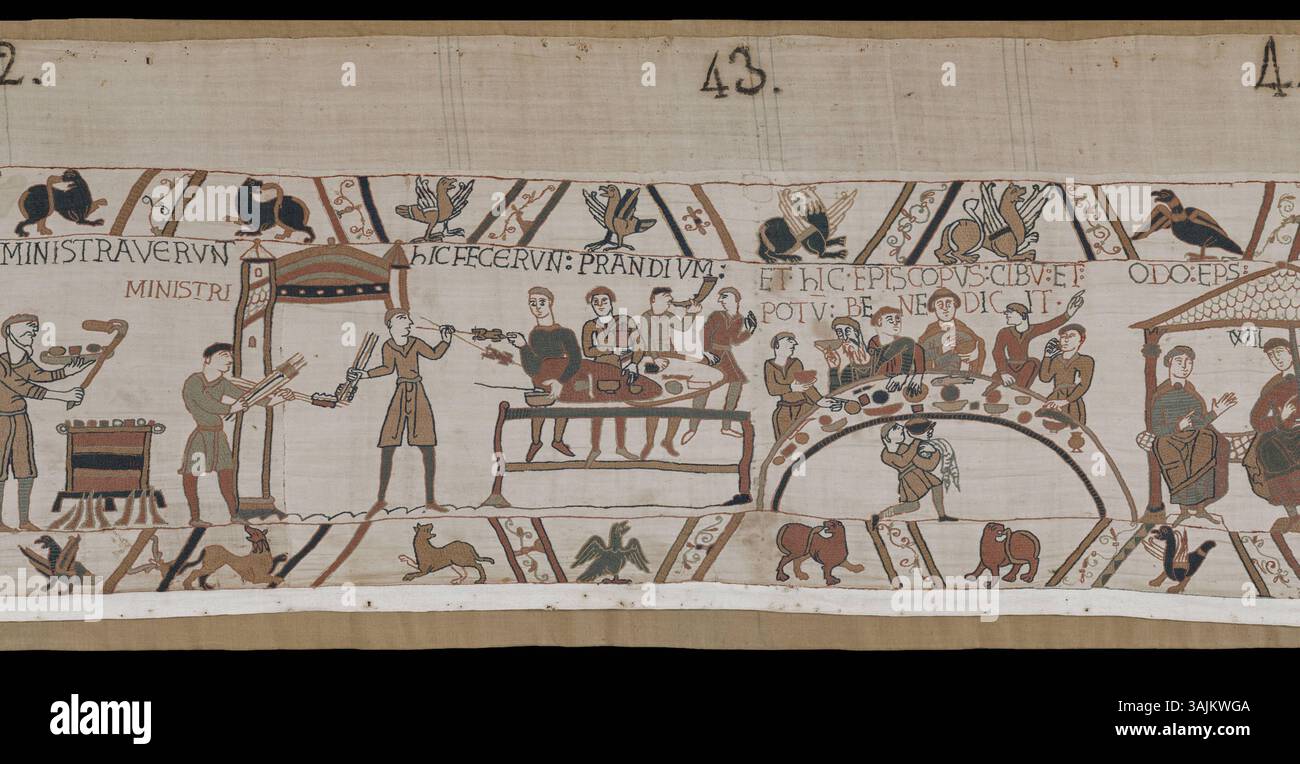 2.
43.
4
MINISTRAVERVN
MINISTRI
hIC FECERVN: PRANDIVM:
ET· hIC· EPISCOPVS: CIBV̄: ET·
POTV̄: BENEDICIT·
ODO: EPS:
a
alamy
Image ID: 3AJKWGA
www.alamy.com